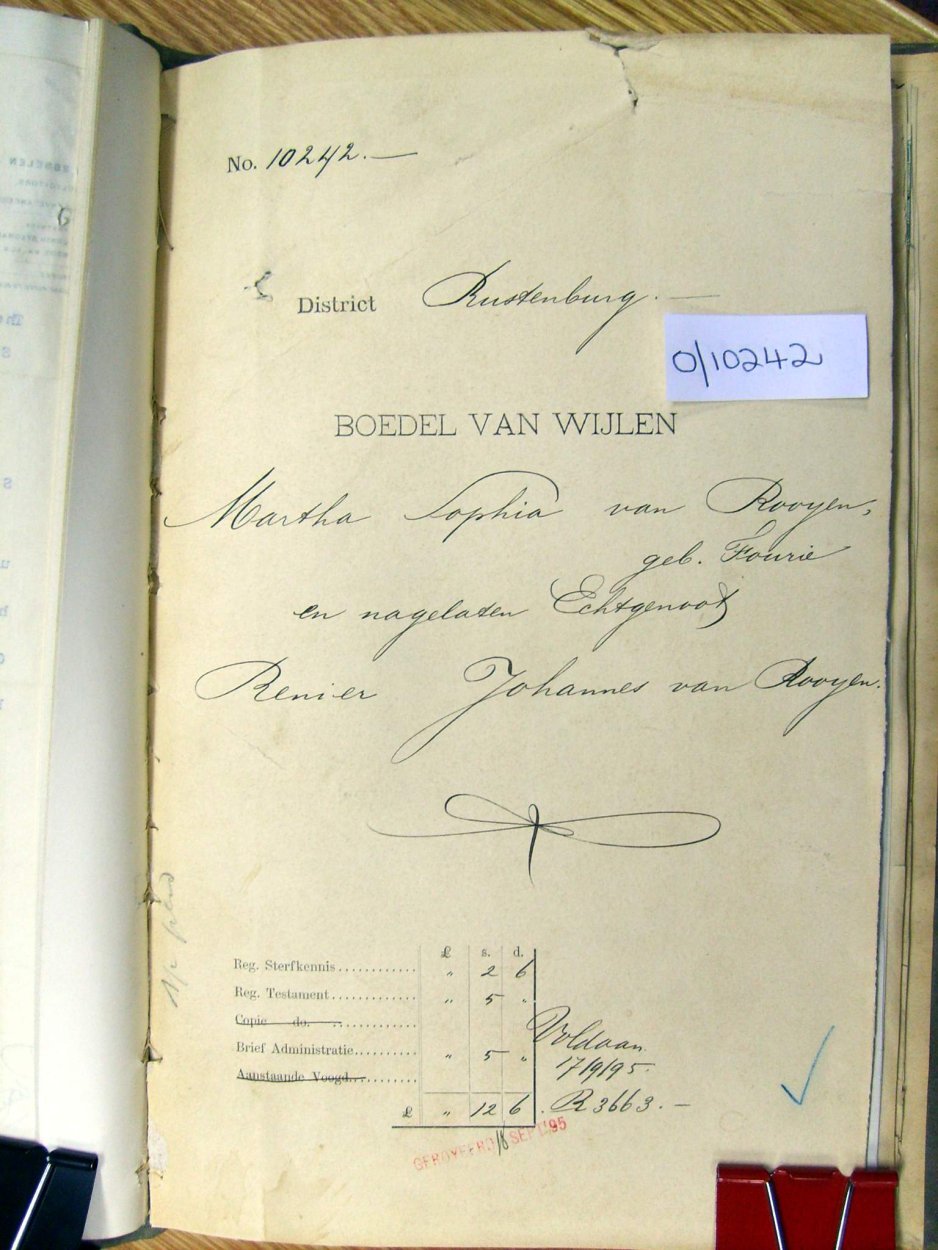 No. 10242.—
District Rustenburg.—
0/10242
BOEDEL VAN WIJLEN
Martha Sophia van Rooyen,
geb. Fourie
en nagelaten Echtgenoot
Renier Johannes van Rooyen.
£ s. d.
Reg. Sterfkennis............ " 2 6
Reg. Testament............ " 5 "
Copie do. ............
Voldaan
Brief Administratie.......... " 5 " 17/9/95.
Aanstaande Voogd..........
£ " 12 6. R 3663.—
GEROYEERD 18 SEPT. 95